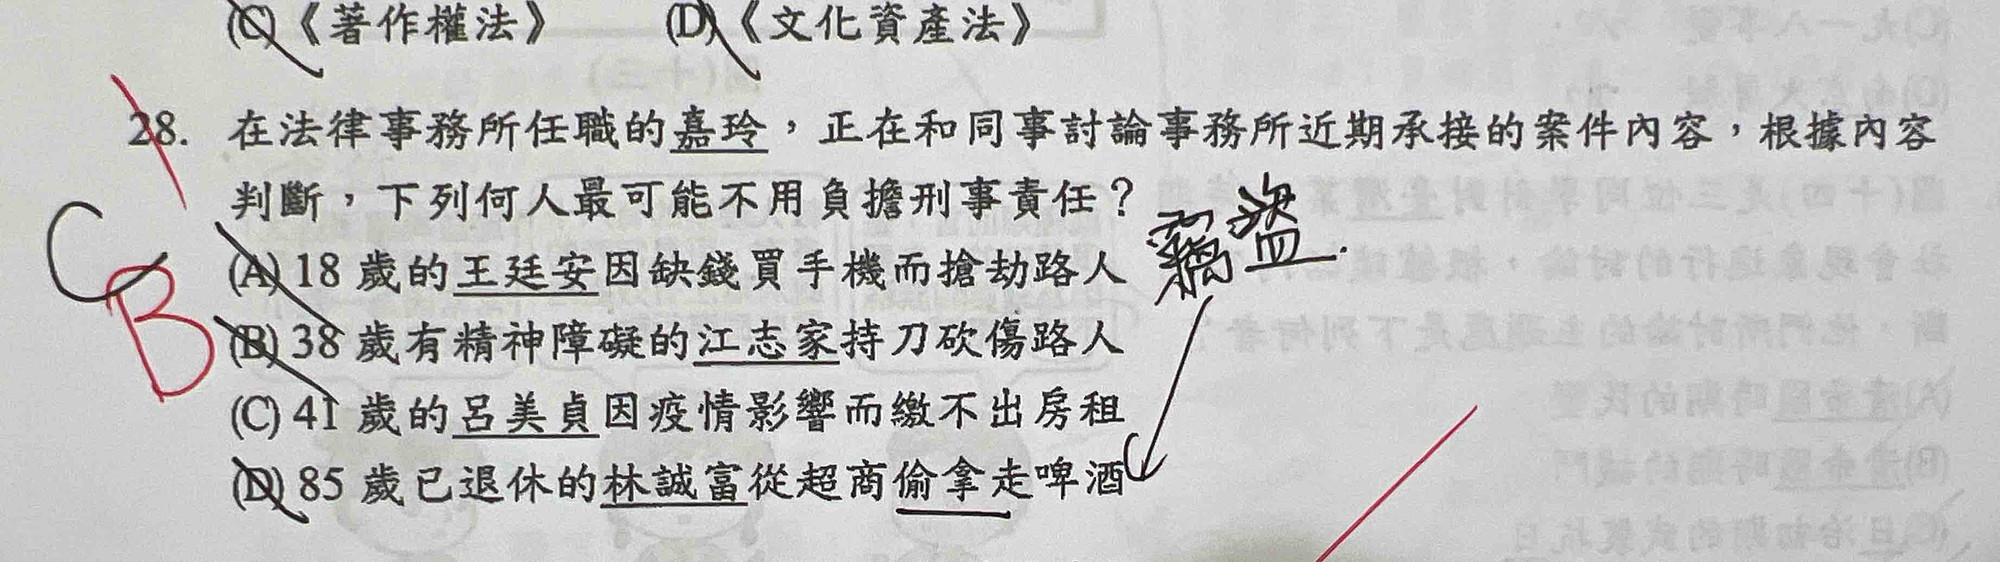 (C)《著作權法》 (D)《文化資產法》
28. 在法律事務所任職的嘉玲，正在和同事討論事務所近期承接的案件內容，根據內容
判斷，下列何人最可能不用負擔刑事責任？
竊盜.
C
B
(A) 18 歲的王廷安因缺錢買手機而搶劫路人
(B) 38 歲有精神障礙的江志家持刀砍傷路人
(C) 41 歲的呂美貞因疫情影響而繳不出房租
(D) 85 歲已退休的林誠富從超商偷拿走啤酒